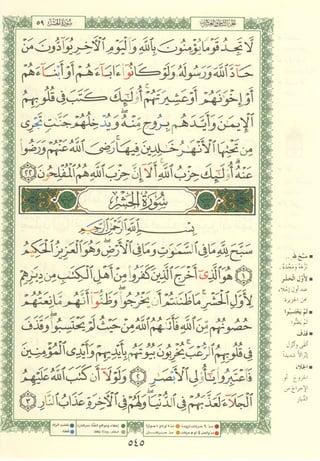 سُورَةُ الحَشْرِ ٥٩
لَّا تَجِدُ قَوْمًا يُؤْمِنُونَ بِاللَّهِ وَالْيَوْمِ الْآخِرِ يُوَادُّونَ مَنْ
حَادَّ اللَّهَ وَرَسُولَهُ وَلَوْ كَانُوا ءَابَاءَهُمْ أَوْ أَبْنَاءَهُمْ
أَوْ إِخْوَانَهُمْ أَوْ عَشِيرَتَهُمْ أُولَٰئِكَ كَتَبَ فِي قُلُوبِهِمُ
الْإِيمَٰنَ وَأَيَّدَهُم بِرُوحٍ مِّنْهُ وَيُدْخِلُهُمْ جَنَّٰتٍ تَجْرِي
مِن تَحْتِهَا الْأَنْهَٰرُ خَٰلِدِينَ فِيهَا رَضِيَ اللَّهُ عَنْهُمْ وَرَضُوا
عَنْهُ أُولَٰئِكَ حِزْبُ اللَّهِ أَلَا إِنَّ حِزْبَ اللَّهِ هُمُ الْمُفْلِحُونَ ٢٢
سُورَةُ الحَشْرِ
بِسْمِ اللَّهِ الرَّحْمَٰنِ الرَّحِيمِ
سَبَّحَ لِلَّهِ مَا فِي السَّمَٰوَٰتِ وَمَا فِي الْأَرْضِ وَهُوَ الْعَزِيزُ الْحَكِيمُ
١ هُوَ الَّذِي أَخْرَجَ الَّذِينَ كَفَرُوا مِنْ أَهْلِ الْكِتَٰبِ مِن دِيَٰرِهِمْ
لِأَوَّلِ الْحَشْرِ مَا ظَنَنتُمْ أَن يَخْرُجُوا وَظَنُّوا أَنَّهُم مَّانِعَتُهُمْ
حُصُونُهُم مِّنَ اللَّهِ فَأَتَىٰهُمُ اللَّهُ مِنْ حَيْثُ لَمْ يَحْتَسِبُوا وَقَذَفَ
فِي قُلُوبِهِمُ الرُّعْبَ يُخْرِبُونَ بُيُوتَهُم بِأَيْدِيهِمْ وَأَيْدِي الْمُؤْمِنِينَ
فَاعْتَبِرُوا يَٰأُولِي الْأَبْصَٰرِ ٢ وَلَوْلَا أَن كَتَبَ اللَّهُ عَلَيْهِمُ
الْجَلَاءَ لَعَذَّبَهُمْ فِي الدُّنْيَا وَلَهُمْ فِي الْآخِرَةِ عَذَابُ النَّارِ ٣
٥٤٥